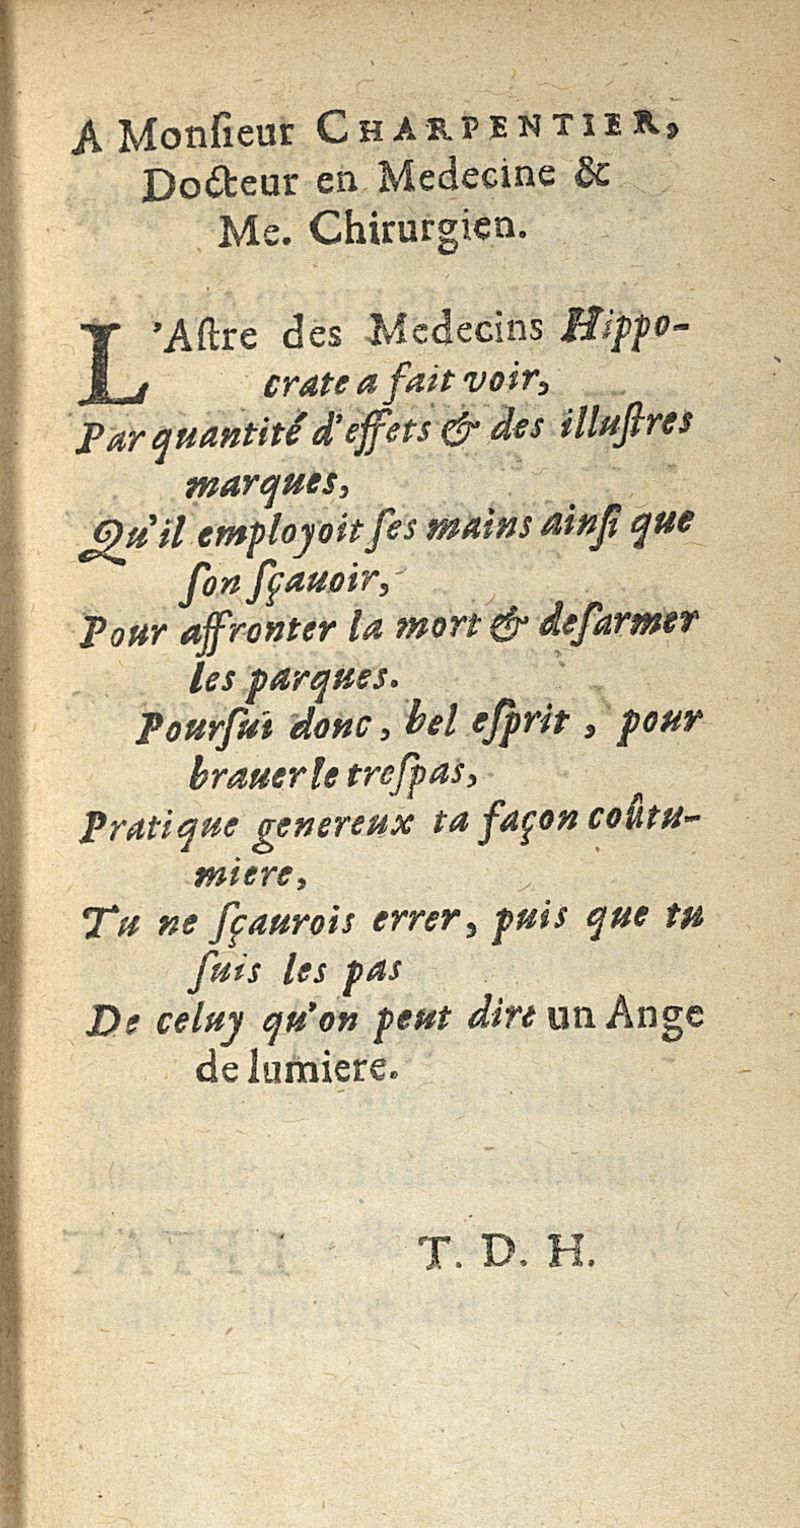 A Monſieur CHARPENTIER,
Docteur en Medecine &
Me. Chirurgien.
L'Aſtre des Medecins Hippo-
crate a fait voir,
Par quantité d'effets & des illuſtres
marques,
Qu'il employoit ſes mains ainſi que
ſon ſçauoir,
Pour affronter la mort & deſarmer
les parques.
Pourſui donc, bel eſprit, pour
brauer le treſpas,
Pratique genereux ta façon coûtu-
miere,
Tu ne ſçaurois errer, puis que tu
ſuis les pas
De celuy qu'on peut dire un Ange
de lumiere.
T. D. H.